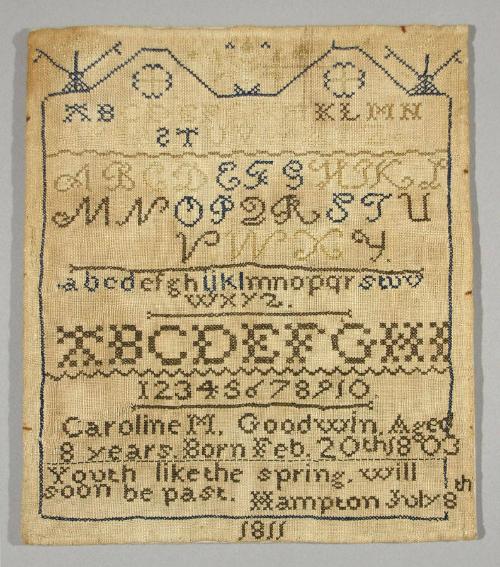 A B C D E F K L M N
S T U V
A B C D E F G H I K L
M N O P Q R S T U
V W X Y.
a b c d e f g h i j k l m n o p q r s w v
w x y z.
A B C D E F G H I
1 2 3 4 5 6 7 8 9 1 0
Caroline M. Goodwin, Aged
8 years. Born Feb. 20th 1803
Youth like the spring, will
soon be past. Hampton July 8th
1811